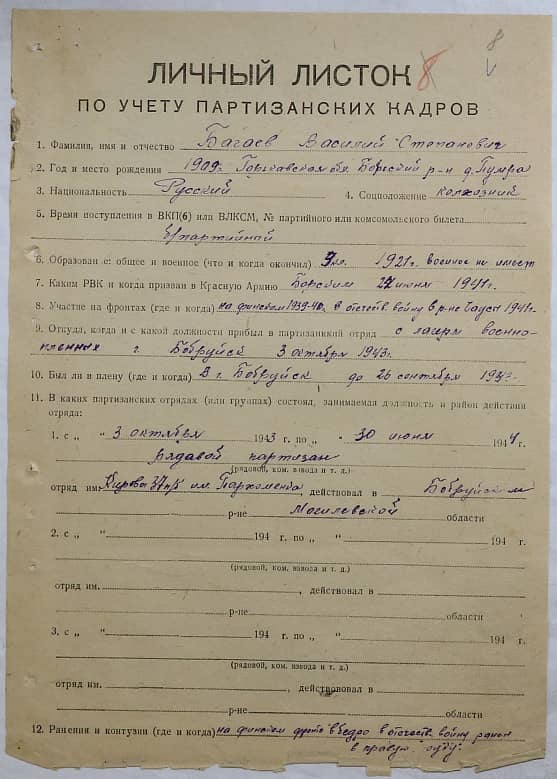 8
8
ЛИЧНЫЙ ЛИСТОК
ПО УЧЕТУ ПАРТИЗАНСКИХ КАДРОВ
1. Фамилия, имя и отчество Багаев Василий Степанович
2. Год и место рождения 1909г. Горьковская обл. Борский р-н д.
3. Национальность Русский 4. Соцположение колхозник
5. Время поступления в ВКП(б) или ВЛКСМ, № партийного или комсомольского билета
б/партийной
6. Образован е: общее и военное (что и когда окончил) 1921г. военное не имеет
7. Каким РВК и когда призван в Красную Армию Борским июня 1941г.
8. Участие на фронтах (где и когда) на финском 1939-40г. в отечеств. войну в р-не 1941г.
9. Откуда, когда и с какой должности прибыл в партизанский отряд с лагеря военно-
пленных г. Бобруйск 3 октября 1943г.
10. Был ли в плену (где и когда) В г. Бобруйск до 26 сентября 1943г.
11. В каких партизанских отрядах (или группах) состоял, занимаемая должность и район действия
отряда:
1. с „ " 3 октября 1943 г. по „ " 30 июня 1944 г.
рядовой партизан
(рядовой, ком. взвода и т. д.)
отряд им. Кирова 37 п/б им. Пархоменко, действовал в Бобруйском
р-не Могилевской области
2. с „ " 194 г. по „ " 194 г.
(рядовой, ком. взвода и т. д.)
отряд им. , действовал в
р-не области
3. с „ " 194 г. по „ " 194 г.
(рядовой, ком. взвода и т. д.)
отряд им. , действовал в
р-не области
12. Ранения и контузии (где и когда) на финском фронте в бедро в отечеств. войну ранен
в правую